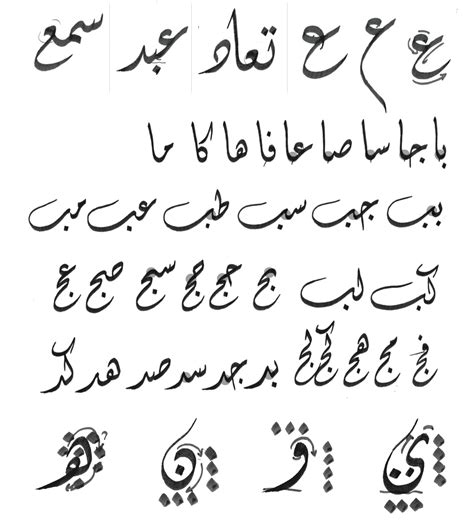 ع ع ع تعاد عبد سمع
با جا سا صا عا فا ها كا ما
بب جب سب طب عب مب
كب لب بج حج سج صج عج
فج مج هج كج لج بد جد سد صد هد كد
و ن